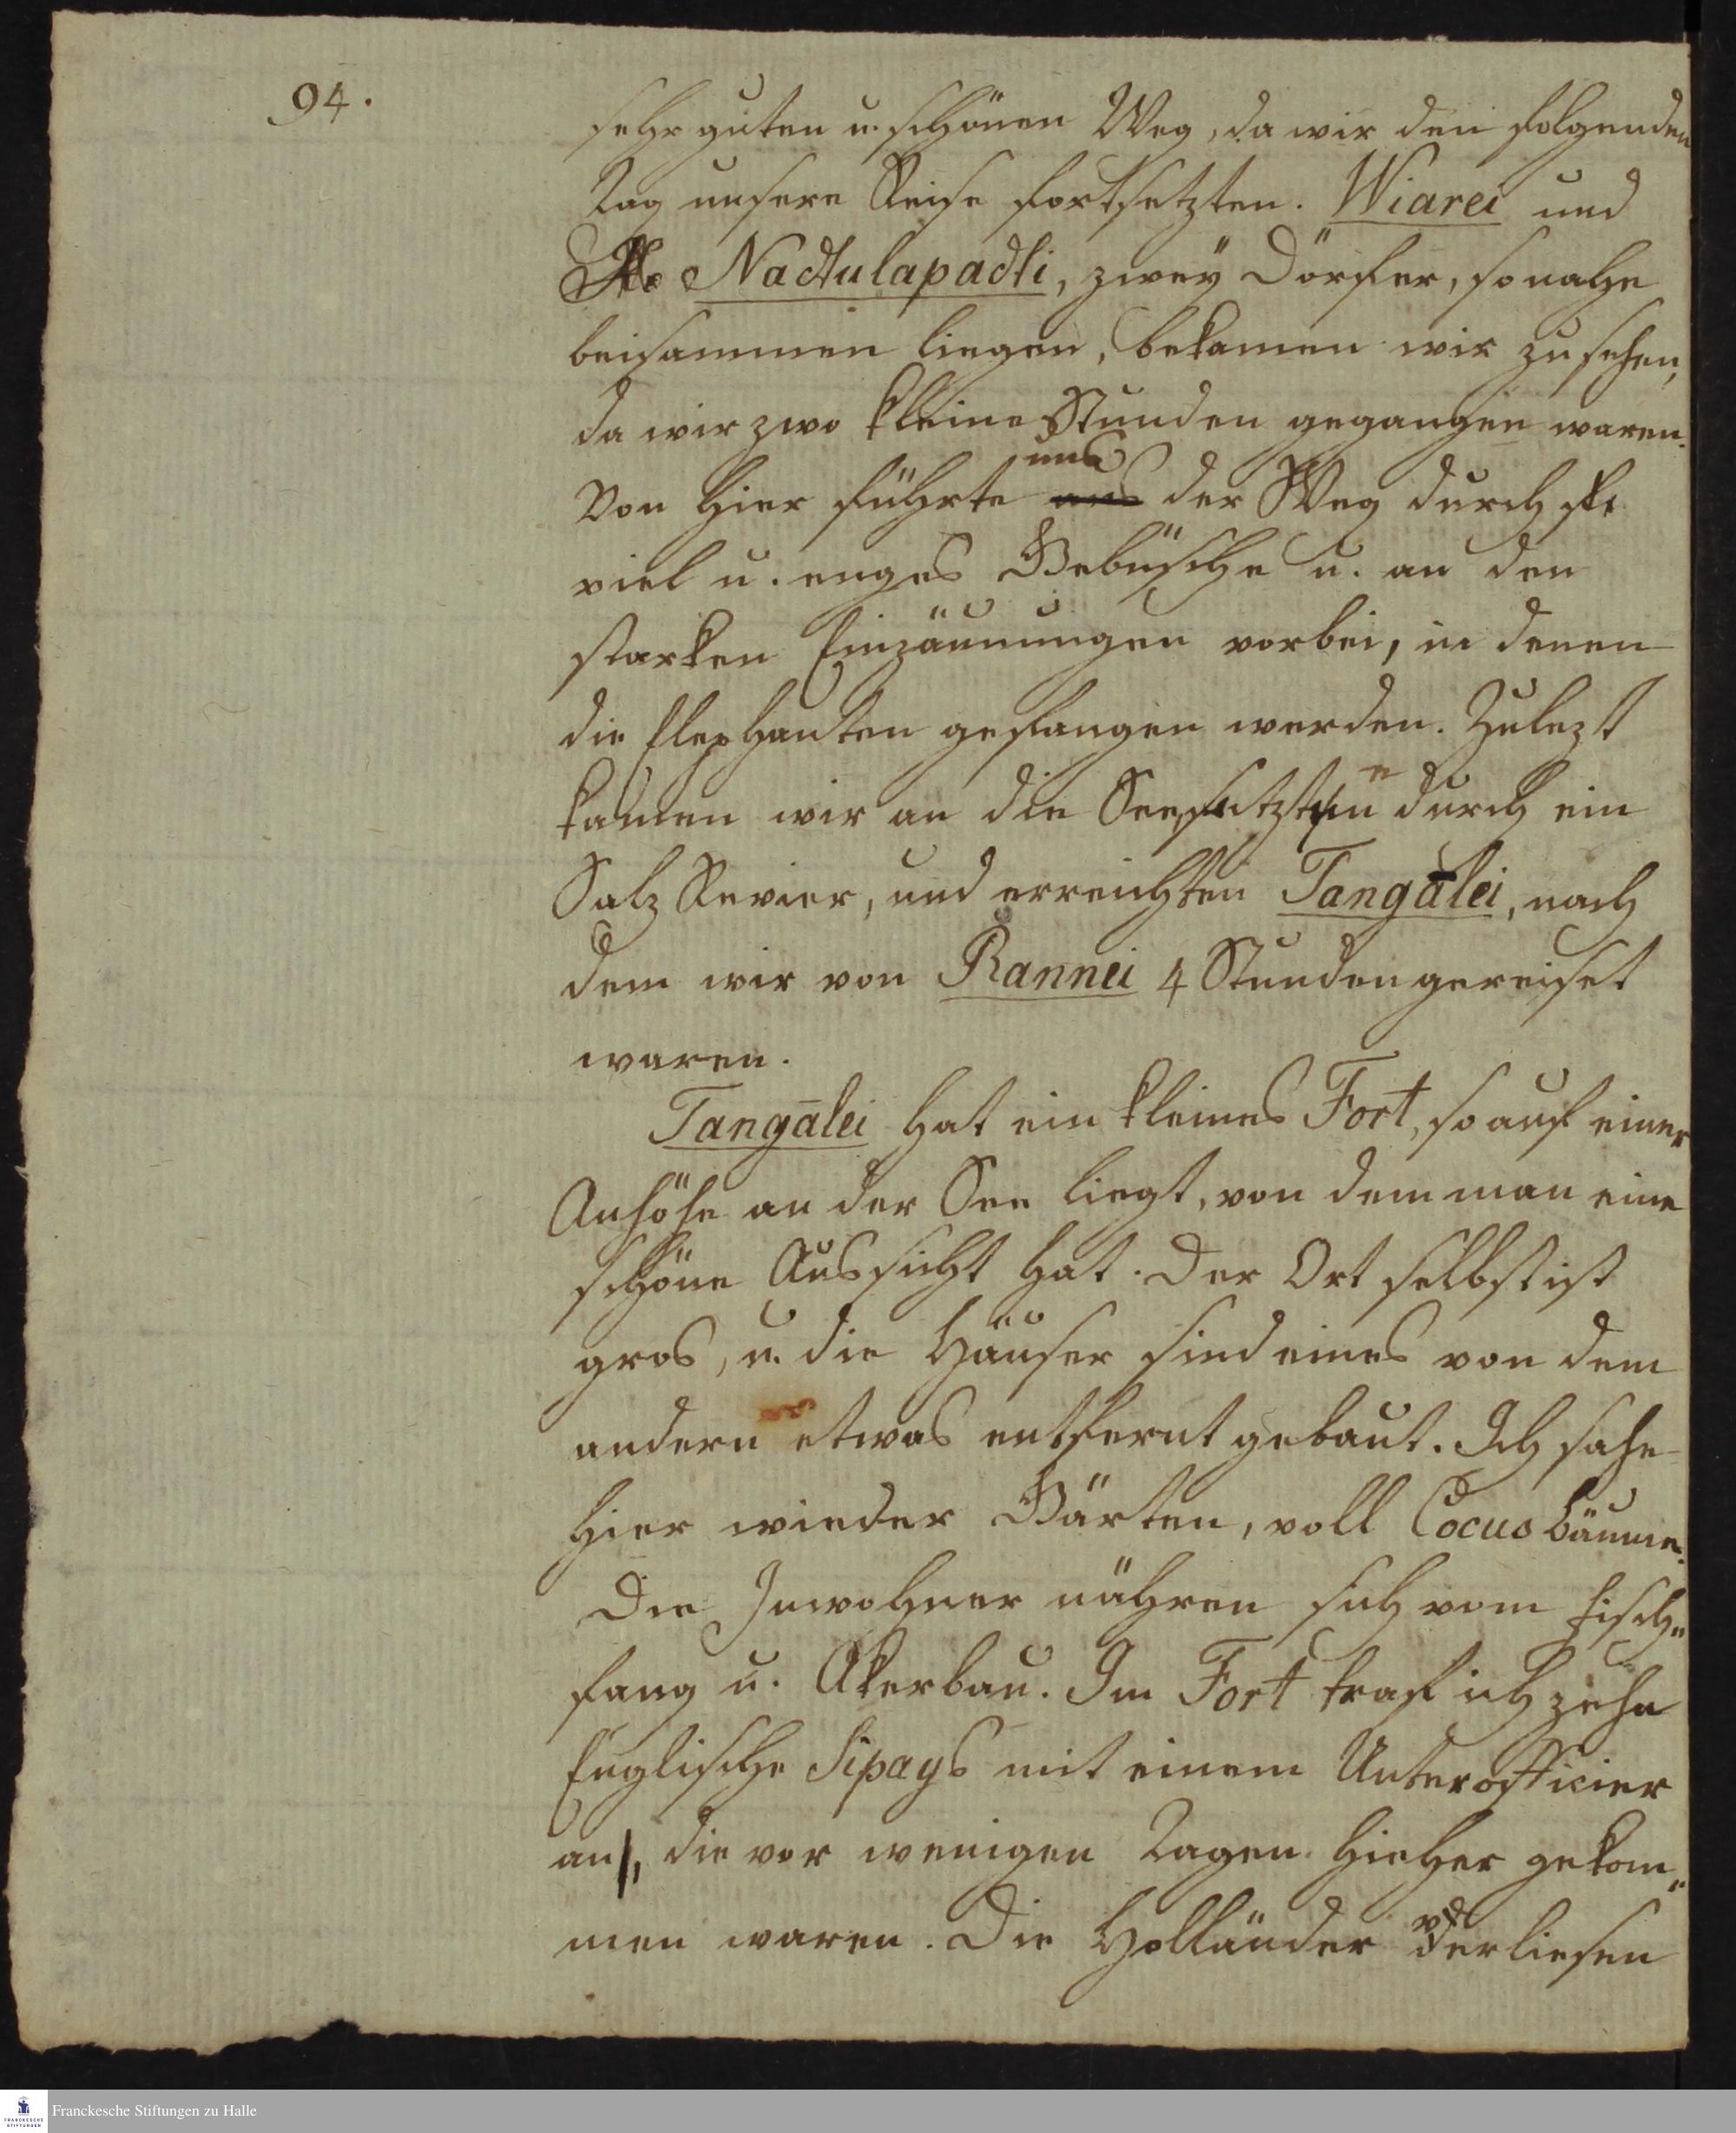 94.
sehr guten u. schönen Weg, da wir den folgenden
Tag unsere Reise fortsetzten. Wiarei und
Nadtulapadti, zwey Dörfer, so nahe
beisammen liegen, bekamen wir zu sehen,
da wir zwo kleine Stunden gegangen waren.
uns
Von hier führte der Weg durch
viel u. enges Gebüsche u. an den
starken Einzäunungen vorbei, in denen
die Elephanten gefangen werden. Zulezt
kamen wir an die See, sezten durch ein
Salz Revier, und erreichten Tangālei, nach
dem wir von Rannei 4 Stunden gereiset
waren.
Tangālei hat ein kleines Fort, so auf einer
Anhöhe an der See liegt, von dem man eine
schöne Aussicht hat. Der Ort selbst ist
gros, u. die Häuser sind eines von dem
andern etwas entfernt gebaut. Ich sahe
hier wieder Gärten, voll Cocusbäume.
Die Inwohner nähren sich vom Fisch-
fang u. Akerbau. Im Fort traf ich zehn
Englische Sipays mit einem Unterofficier
an, die vor wenigen Tagen hieher gekom-
men waren. Die Holländer verliesen
Franckesche Stiftungen zu Halle